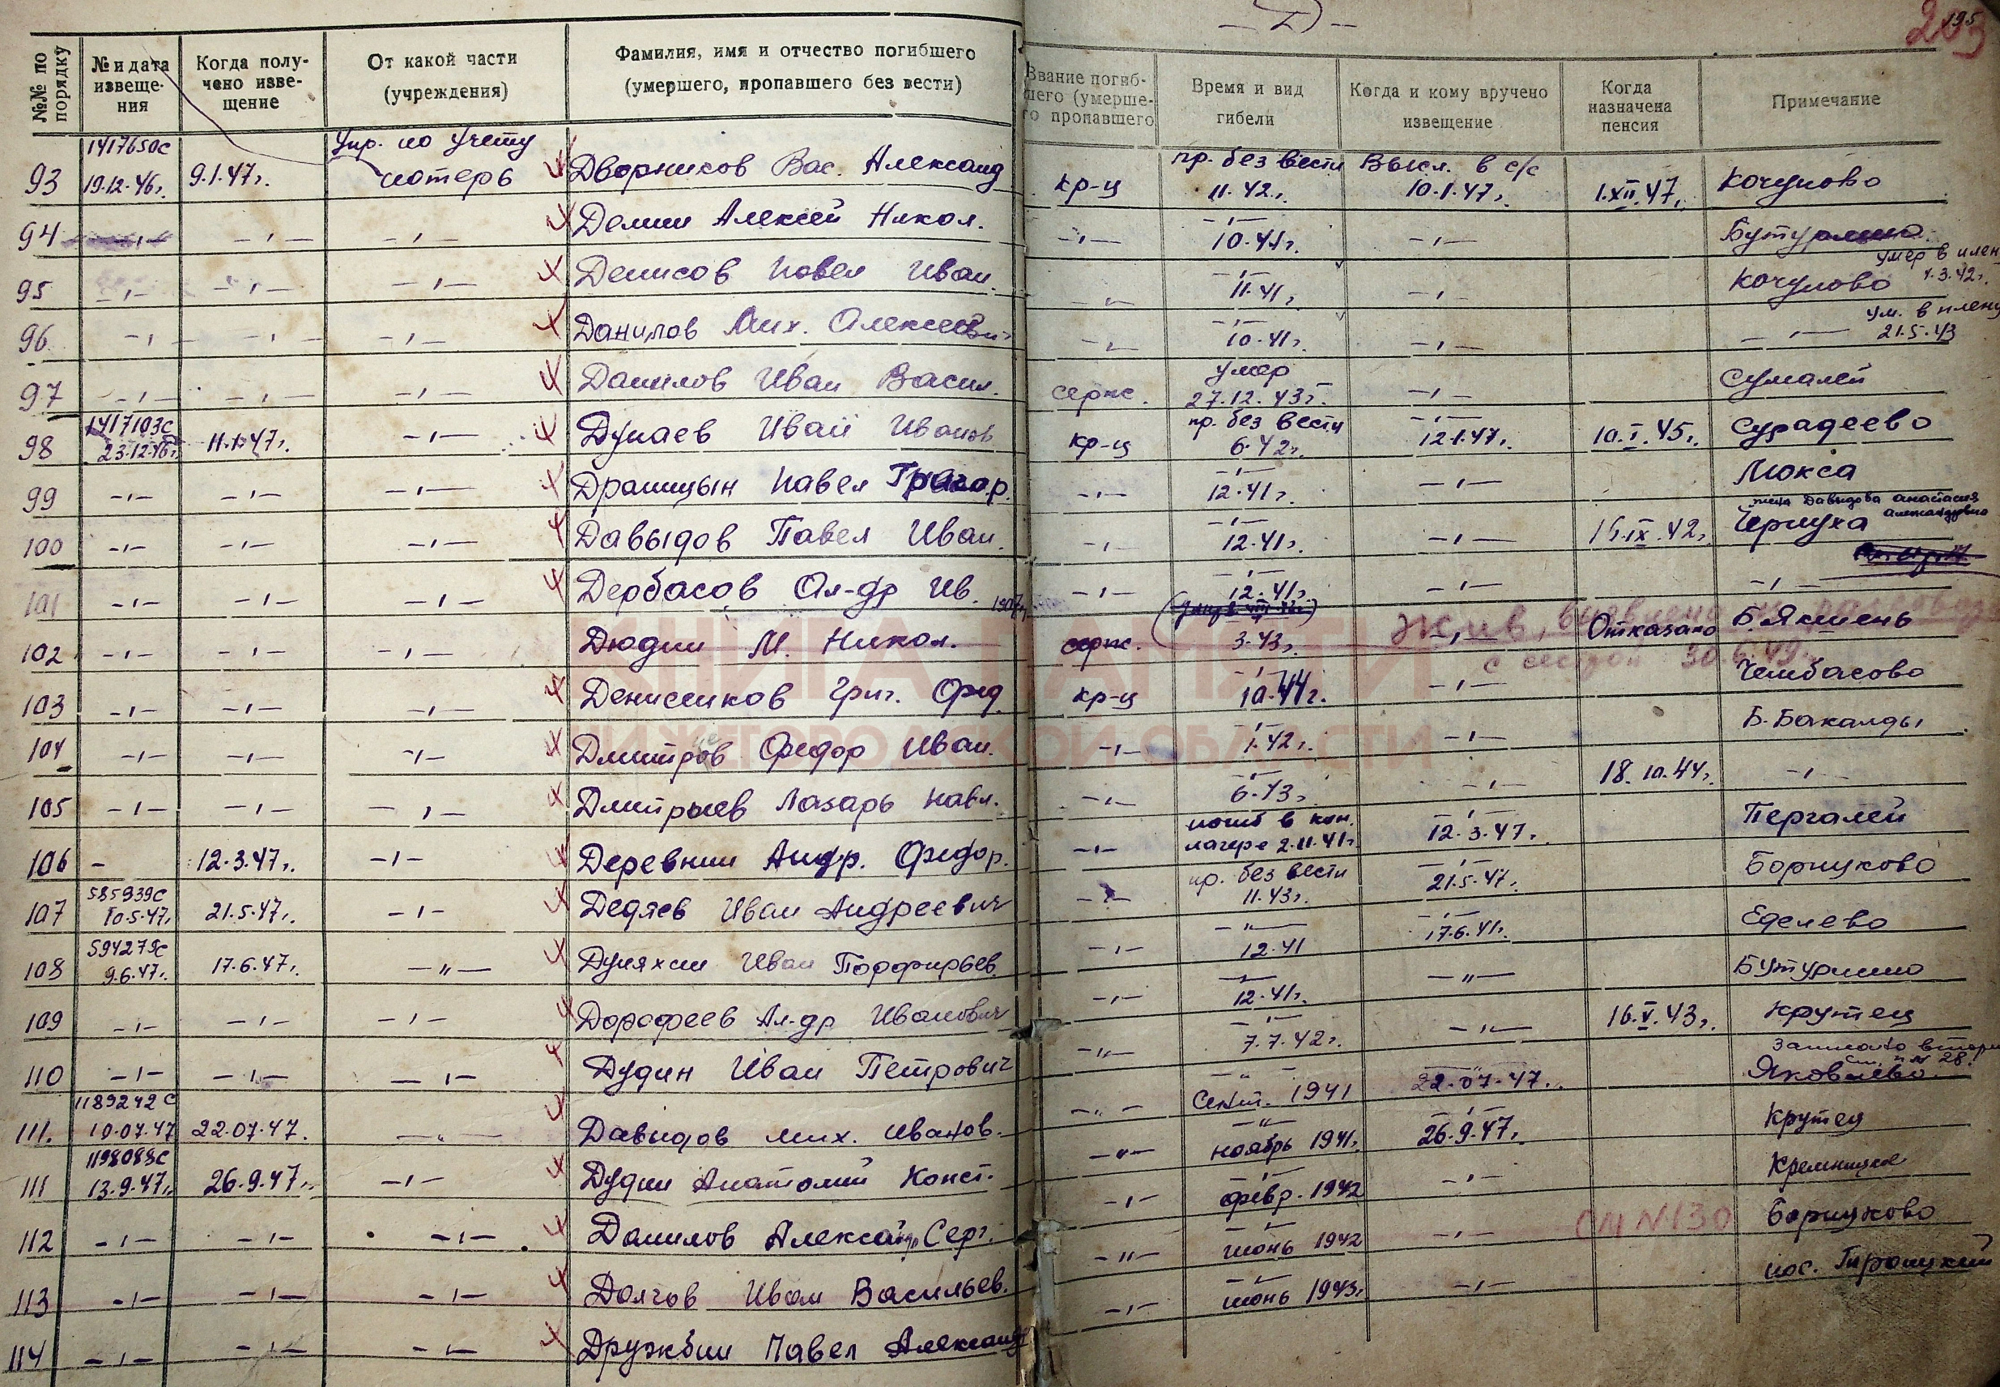 — Д —
203
195
№№ по порядку | № и дата извеще-ния | Когда полу-чено изве-щение | От какой части (учреждения) | Фамилия, имя и отчество погибшего (умершего, пропавшего без вести) | Звание погиб-шего (умерше-го пропавшего | Время и вид гибели | Когда и кому вручено извещение | Когда назначена пенсия | Примечание
93 | 1417650с 19.12.46г. | 9.1.47г. | Упр. по учету потерь | Дворников Вас. Александ | кр-ц | пр. без вести 11.42г. | Высл. в с/с 10.1.47г. | 1.XII.47г. | Кочуново
94 | —〃— | —〃— | —〃— | Демин Алексей Никол. | —〃— | —〃— 10.41г. | —〃— | Бутурлино
95 | —〃— | —〃— | —〃— | Денисов Павел Иван. | —〃— | —〃— 11.41г. | —〃— | Кочуново умер в плен 4.3.42г.
96 | —〃— | —〃— | —〃— | Данилов Мих. Алексеевич | —〃— | —〃— 10.41г. | —〃— | —〃— ум. в плену 21.5.43
97 | —〃— | —〃— | —〃— | Данилов Иван Васил. | серж. | умер 27.12.43г. | —〃— | Сумалей
98 | 1417103с 23.12.46г. | 11.1.47г. | —〃— | Дунаев Иван Иванов | кр-ц | пр. без вести 6.42г. | —〃— 12.1.47г. | 10.I.45г. | Сурадеево
99 | —〃— | —〃— | —〃— | Драницын Павел Григор. | —〃— | —〃— 12.41г. | —〃— | Мокса
100 | —〃— | —〃— | —〃— | Давыдов Павел Иван. | —〃— | —〃— 12.41г. | —〃— | 16.IX.42г. | Чернуха жена Давыдова Анастасия Александровна
101 | —〃— | —〃— | —〃— | Дербасов Ал-др Ив. 1907г | —〃— | —〃— 12.41г. | —〃— | —〃—
102 | —〃— | —〃— | —〃— | Дюдин М. Никол. | серж. | 3.43г. | —〃— | Отказано | Б.Якшень
Жив,
с сестрой 30.6.49г.
103 | —〃— | —〃— | —〃— | Денисенков Григ. Фед. | кр-ц | —〃— 10.44г. | —〃— | Чембасово
104 | —〃— | —〃— | —〃— | Дмитров Федор Иван. | —〃— | —〃— 1.42г. | —〃— | Б.-Бакалды
105 | —〃— | —〃— | —〃— | Дмитриев Лазарь Павл. | —〃— | —〃— 6.43г. | —〃— | 18.10.44г. | —〃—
106 | — | 12.3.47г. | —〃— | Деревнин Андр. Федор. | —〃— | погиб в кон. лагере 2.11.41г. | —〃— 12.3.47г. | Пергалей
107 | 585939с 10.5.47г. | 21.5.47г. | —〃— | Дедяев Иван Андреевич | —〃— | пр. без вести 11.43г. | —〃— 21.5.47г. | Борнуково
108 | 594279с 9.6.47г. | 17.6.47г. | —〃— | Дуняхин Иван Порфирьев. | —〃— | —〃— 12.41 | —〃— 17.6.41г. | Еделево
109 | —〃— | —〃— | —〃— | Дорофеев Ал-др Иванович | —〃— | —〃— 12.41г. | —〃— | Бутурлино
110 | —〃— | —〃— | —〃— | Дудин Иван Петрович | —〃— | —〃— 7.7.42г. | —〃— | 16.V.43г. | Крутец
111. | 1189242 с 10.07.47 | 22.07.47. | —〃— | Давыдов Мих. Иванов. | —〃— | —〃— Сент. 1941 | 22.07.47. | Яковлево. записано вторич см. п № 28.
111 | 1198088с 13.9.47г. | 26.9.47г. | —〃— | Дудин Анатолий Конст. | —〃— | —〃— ноябрь 1941г. | —〃— 26.9.47г. | Крутец
112 | —〃— | —〃— | —〃— | Данилов Александр Серг. | —〃— | —〃— февр. 1942 | —〃— | Кремницкое
113 | —〃— | —〃— | —〃— | Долгов Иван Васильев. | —〃— | —〃— июнь 1942 | —〃— | см N 130 | Борнуково
114 | —〃— | —〃— | —〃— | Дружбин Павел Александ | —〃— | —〃— июнь 1943г. | —〃— | пос.
КНИГА ПАМЯТИ
НИЖЕГОРОДСКОЙ ОБЛАСТИ